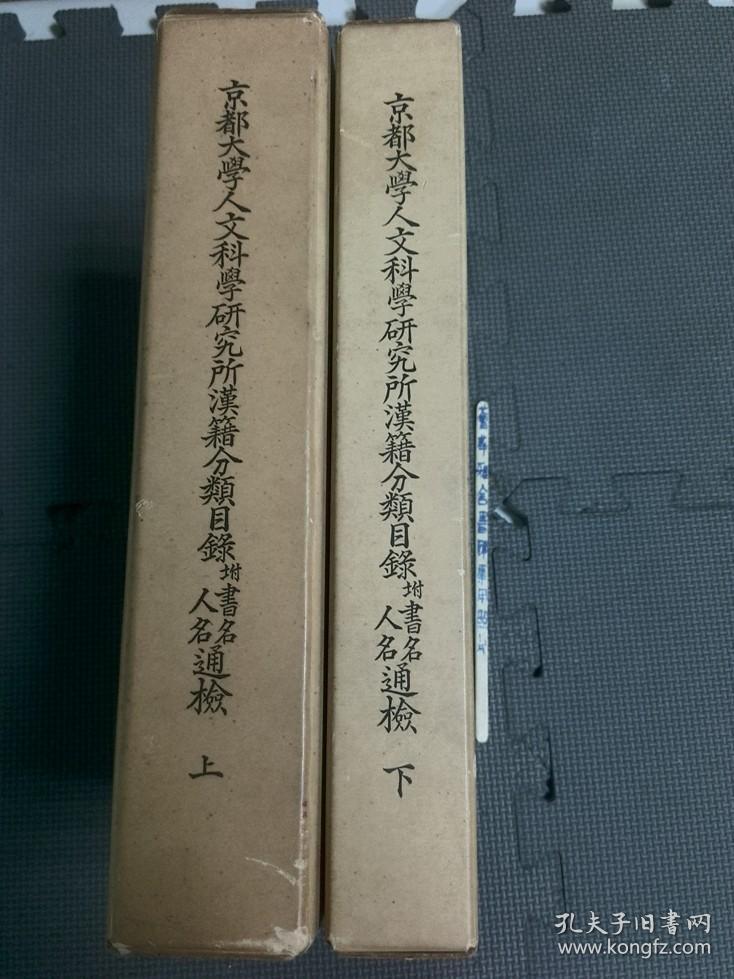 京都大學人文科學研究所漢籍分類目錄 坿 書名人名通檢 上
京都大學人文科學研究所漢籍分類目錄 坿 書名人名通檢 下
孔夫子旧书网
www.kongfz.com